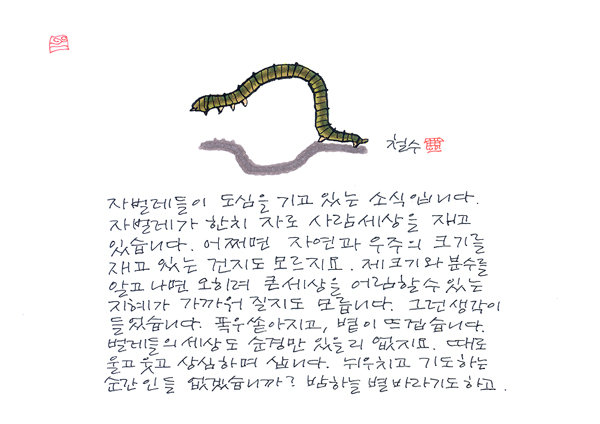 철수
자벌레들이 도심을 기고 있는 소식입니다.
자벌레가 한치 자로 사람세상을 재고
있습니다. 어쩌면 자연과 우주의 크기를
재고 있는 건지도 모르지요. 제크기와 분수를
알고나면 오히려 큰세상을 어림할수있는
지혜가 가까워 질지도 모릅니다. 그런생각이
들었습니다. 폭우쏟아지고, 볕이 뜨겁습니다.
벌레들의 세상도 순경만 있을리 없지요. 때로
울고웃고 상심하며 삽니다. 뉘우치고 기도하는
순간인들 없겠습니까? 밤하늘 별바라기도하고.